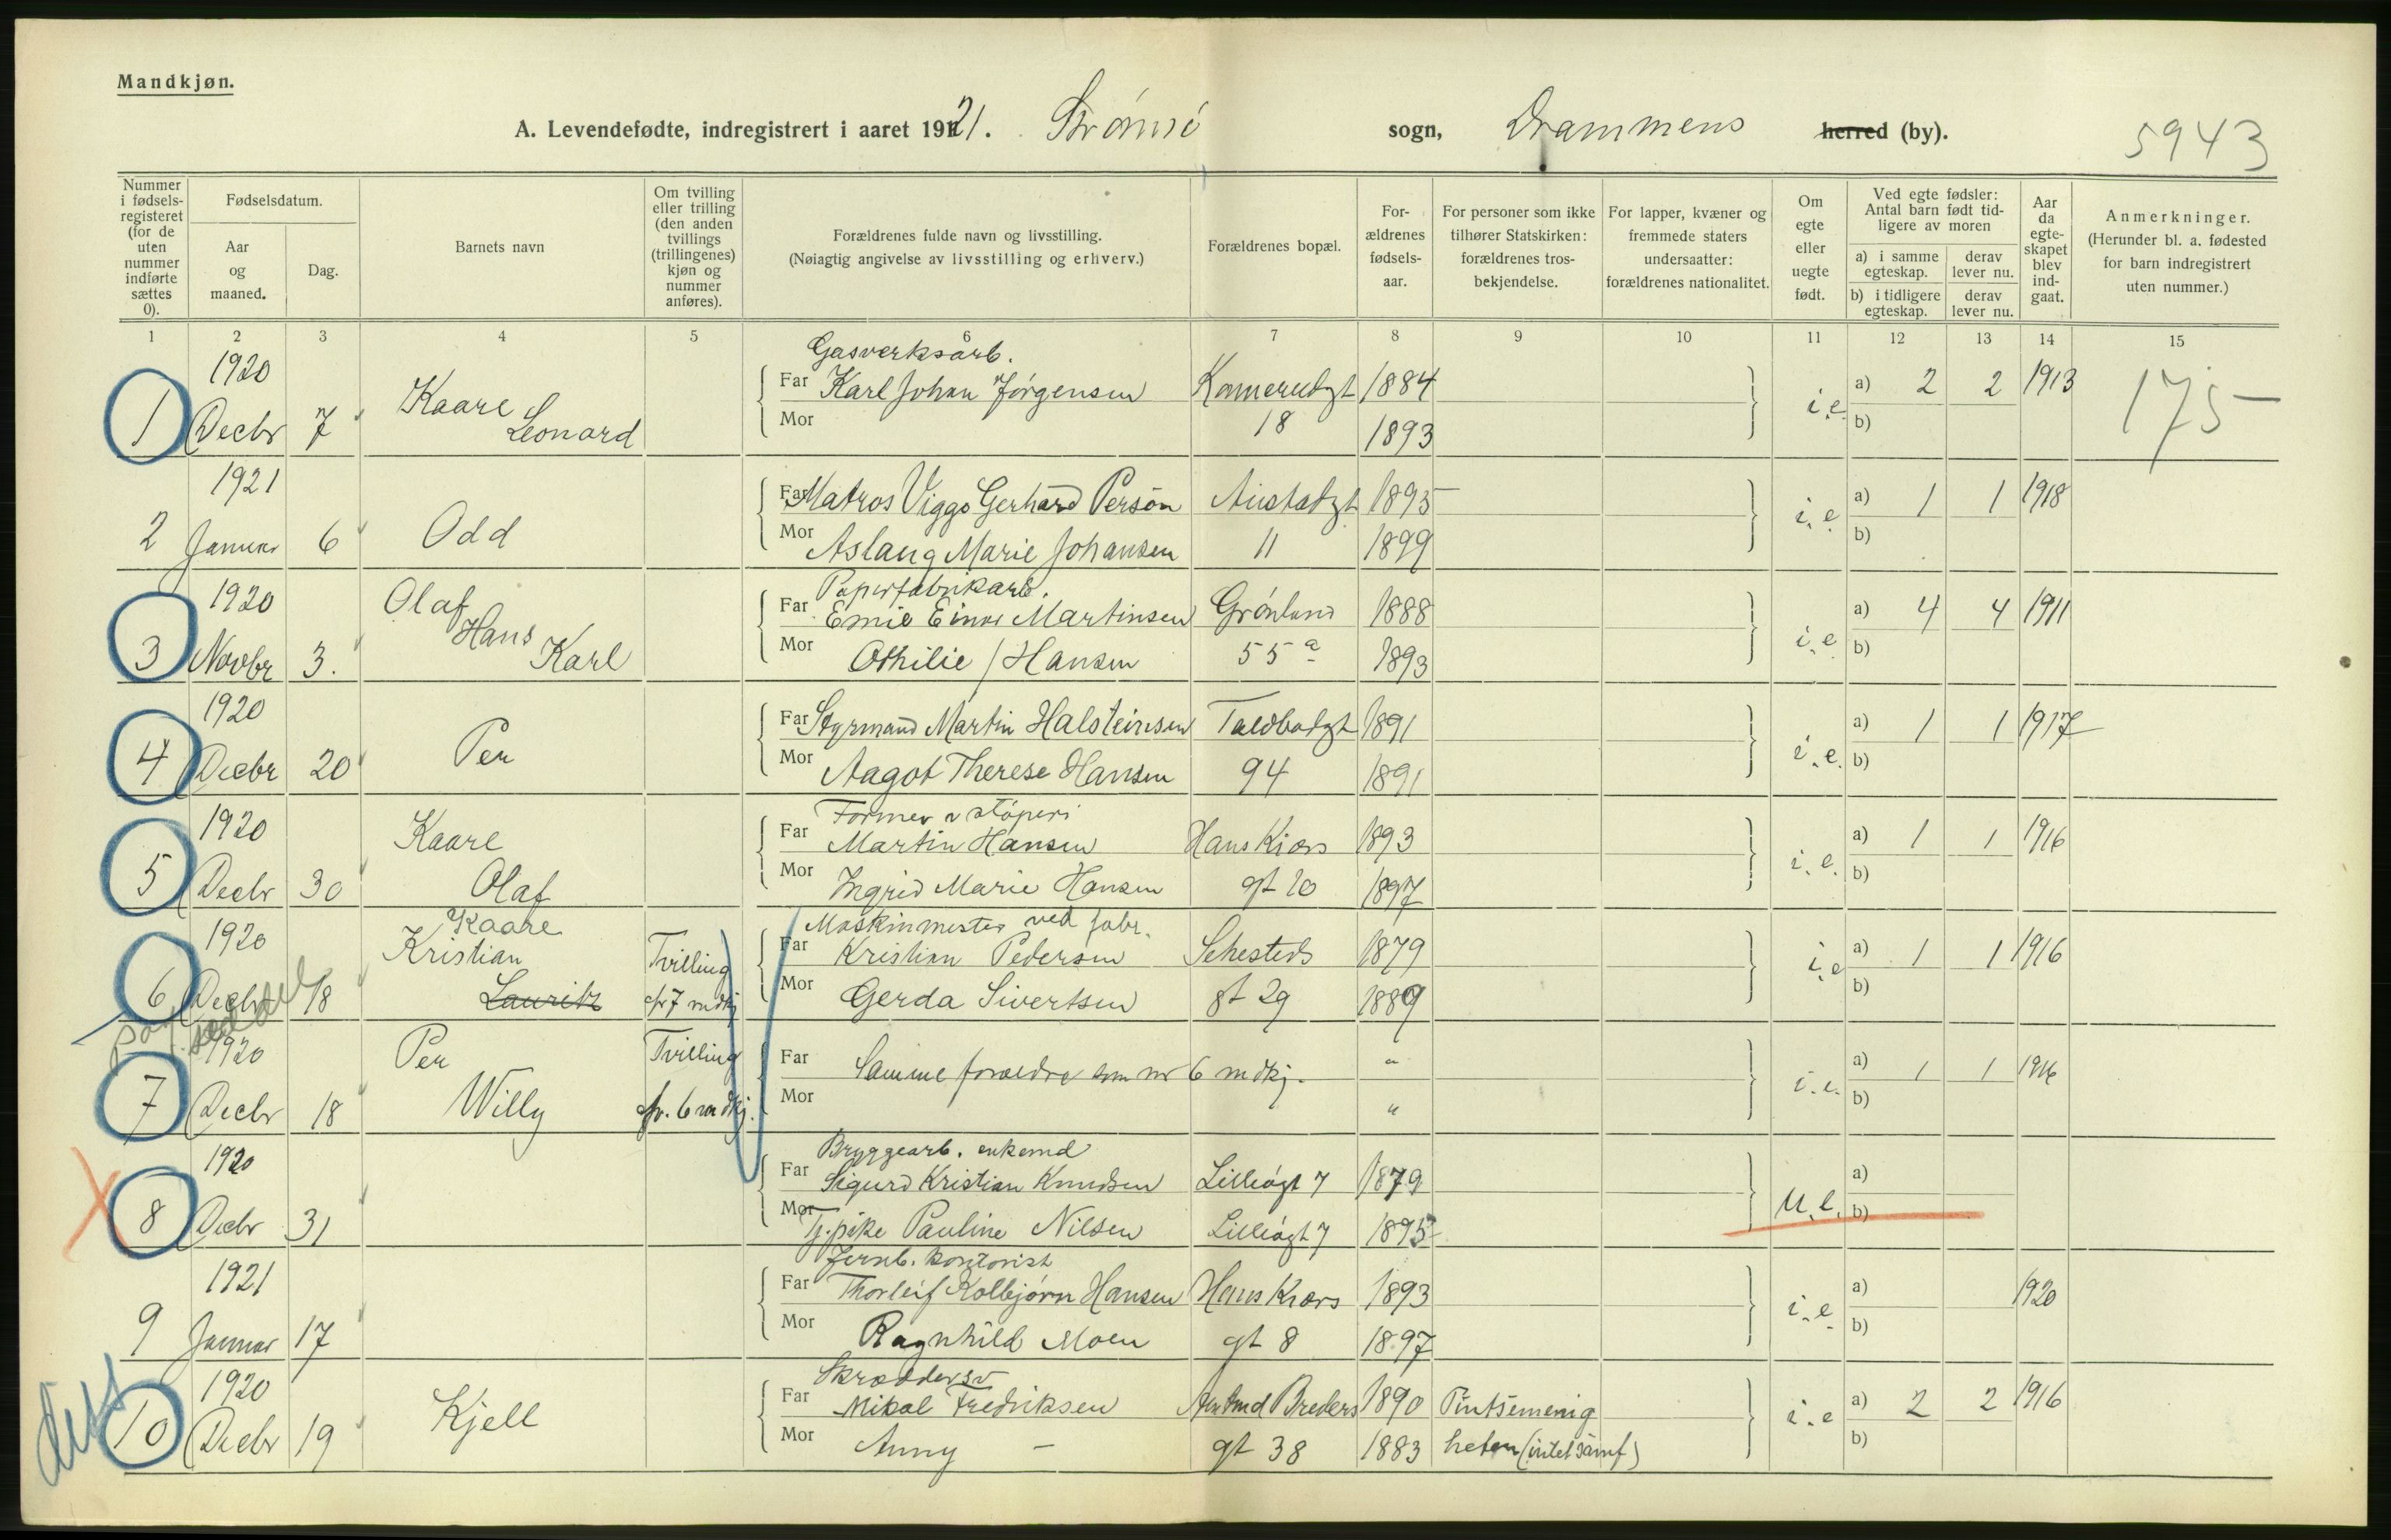 Mandkjøn.
A. Levendefødte, indregistrert i aaret 1921. Strømsø sogn, Drammens herred (by).
5943
Nummer i fødselsregisteret (for de uten nummer indførte sættes 0).
Fødselsdatum.
Aar og maaned.
Dag.
Barnets navn
Om tvilling eller trilling (den anden tvillings (trillingenes) kjøn og nummer anføres).
Forældrenes fulde navn og livsstilling.
(Nøiagtig angivelse av livsstilling og erhverv.)
Forældrenes bopæl.
Forældrenes fødselsaar.
For personer som ikke tilhører Statskirken: forældrenes trosbekjendelse.
For lapper, kvæner og fremmede staters undersaatter: forældrenes nationalitet.
Om egte eller uegte født.
Ved egte fødsler: Antal barn født tidligere av moren
a) i samme egteskap.
derav lever nu.
b) i tidligere egteskap.
derav lever nu.
Aar da egteskapet blev indgaat.
Anmerkninger.
(Herunder bl. a. fødested for barn indregistrert uten nummer.)
1 2 3 4 5 6 7 8 9 10 11 12 13 14 15
1920 Gasverksarb.
Far Karl Johan Jørgensen 1884 a) 2 2 1913 175
1 Decbr 7 Kaare Leonard Mor 18 1893 i.e. b)
1921 Far Matros Viggo Gerhard Person Austadgt 1895 a) 1 1 1918
2 Januar 6 Odd Mor Aslaug Marie Johansen 11 1899 i.e b)
1920 Olaf Papirfabrikarb.
Far Emil Einar Martinsen Grønland 1888 a) 4 4 1911
3 Novbr 3. Hans Karl Mor Othilie / Hansen 55 a 1893 i.e b)
1920 Far Styrmand Martin Halsteinsen Toldbodgt 1891 a) 1 1 1917
4 Decbr 20 Per Mor Aagot Therese Hansen 94 1891 i.e. b)
1920 Kaare Former v støperi
Far Martin Hansen Hans Kiærs 1893 a) 1 1 1916
5 Decbr 30 Olaf Mor Ingrid Marie Hansen gt 20 1897 i.e. b)
1920 Kaare Kristian Tvilling Maskinmester ved fabr.
Far Kristian Pedersen Sehesteds 1879 a) 1 1 1916
6 Decbr 18 Lauritz cfr 7 mdkj Mor Gerda Sivertsen gt 29 1889 i.e b)
1920 Per Tvilling Far Samme forældre som nr 6 mdkj. " a) 1 1 1916
7 Decbr 18 Willy cfr. 6 mdkj. Mor " i.e. b)
1920 Bryggearb. enkemd
Far Sigurd Kristian Knudsen Lilleøgt 7 1879 a)
8 Decbr 31 Mor Tj.pike Pauline Nilsen Lilleøgt 7 1895 U.e. b)
1921 Jernb. kontorist
Far Thorleif Kolbjørn Hansen Hans Kiærs 1893 a) 1920
9 Januar 17 Mor Ragnhild Moen gt 8 1897 i.e. b)
1920 Skræddersv
Far Mikal Fredriksen 1890 Pintsemenig a) 2 2 1916
10 Decbr 19 Kjell Mor Anny — gt 38 1883 heten (intet samf) i.e b)